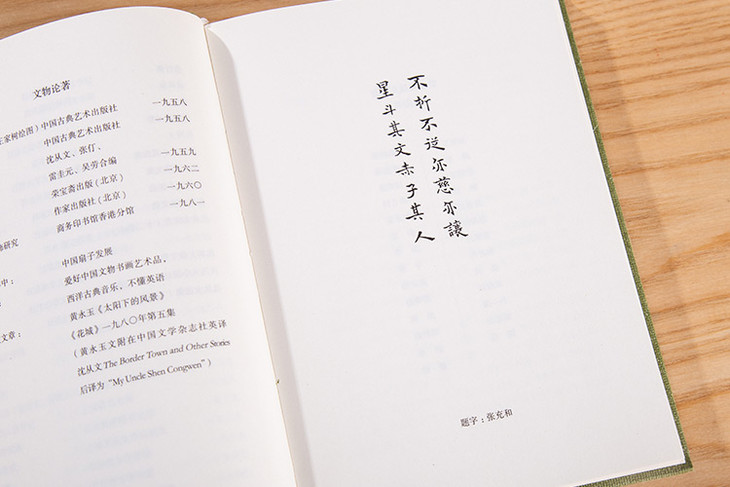 文物论著
王家树绘图）中国古典艺术出版社 一九五八
中国古典艺术出版社 一九五八
沈从文、张仃、
雷圭元、吴劳合编 一九五九
荣宝斋出版（北京） 一九六二
作家出版社（北京） 一九六〇
商务印书馆香港分馆 一九八一
研究
中国扇子发展
中： 爱好中国文物书画艺术品，
： 西洋古典音乐，不懂英语
： 黄永玉《太阳下的风景》
文章： 《花城》一九八〇年第五集
（黄永玉文附在中国文学杂志社英译
沈从文 The Border Town and Other Stories
后译为“My Uncle Shen Congwen”）
不折不从亦慈亦讓
星斗其文赤子其人
题字：张充和